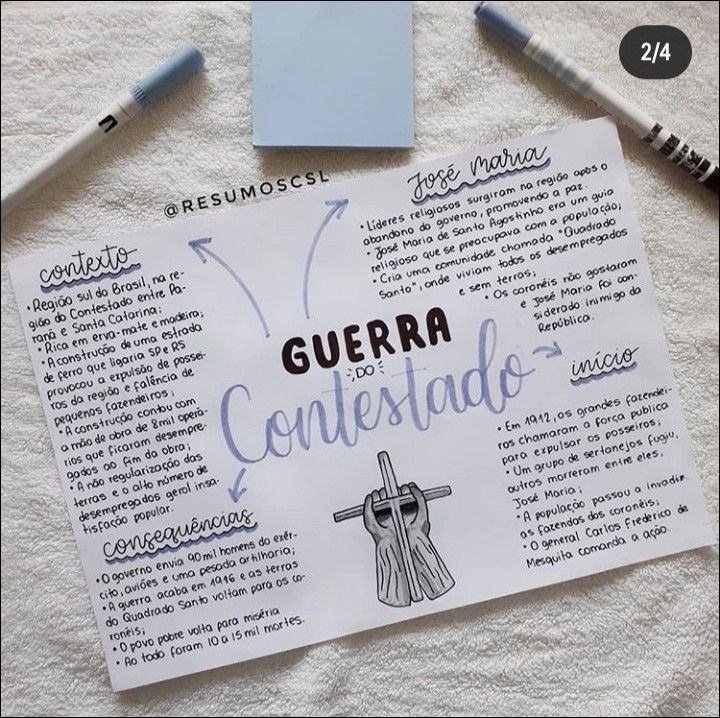 2/4
@RESUMOSCSL
GUERRA
DO
Contestado
contexto
• Região sul do Brasil, na re-
gião do Contestado entre Pa-
raná e Santa Catarina;
• Rica em erva-mate e madeira;
• A construção de uma estrada
de ferro que ligaria SP e RS
provocou a expulsão de possei-
ros da região e falência de
pequenas fazendeiros;
• A construção contou com
a mão de obra de 8 mil operá-
rios que ficaram desempre-
gados ao fim da obra;
• A não regularização das
terras e o alto número de
desempregados gerol insa-
tisfação popular.
José Maria
• Líderes religiosos surgiram na região após o
abandono do governo, promovendo a paz.
• José Maria de Santo Agostinho era um guia
religioso que se preocupava com a população;
• Cria uma comunidade chamada "Quadrado
Santo", onde viviam todos os desempregados
e sem terras;
• Os coronéis não gostaram
e José Maria foi con-
siderado inimigo da
República.
início
• Em 1912, os grandes fazendei-
ros chamaram a força publica
para expulsar os posseiros;
• Um grupo de sertanejos fugiu,
outros morreram entre eles,
José Maria;
• A população passou a invadir
as fazendas dos coronéis;
• O general Carlos Frederico de
Mesquita comanda a ação.
consequências
• O governo envia 90 mil homens do exér-
cito, aviões e uma pesada artilharia;
• A guerra acaba em 1916 e as terras
do Quadrado Santo voltam para os co-
ronéis;
• O povo pobre volta para miséria
• Ao todo foram 10 a 15 mil mortes.